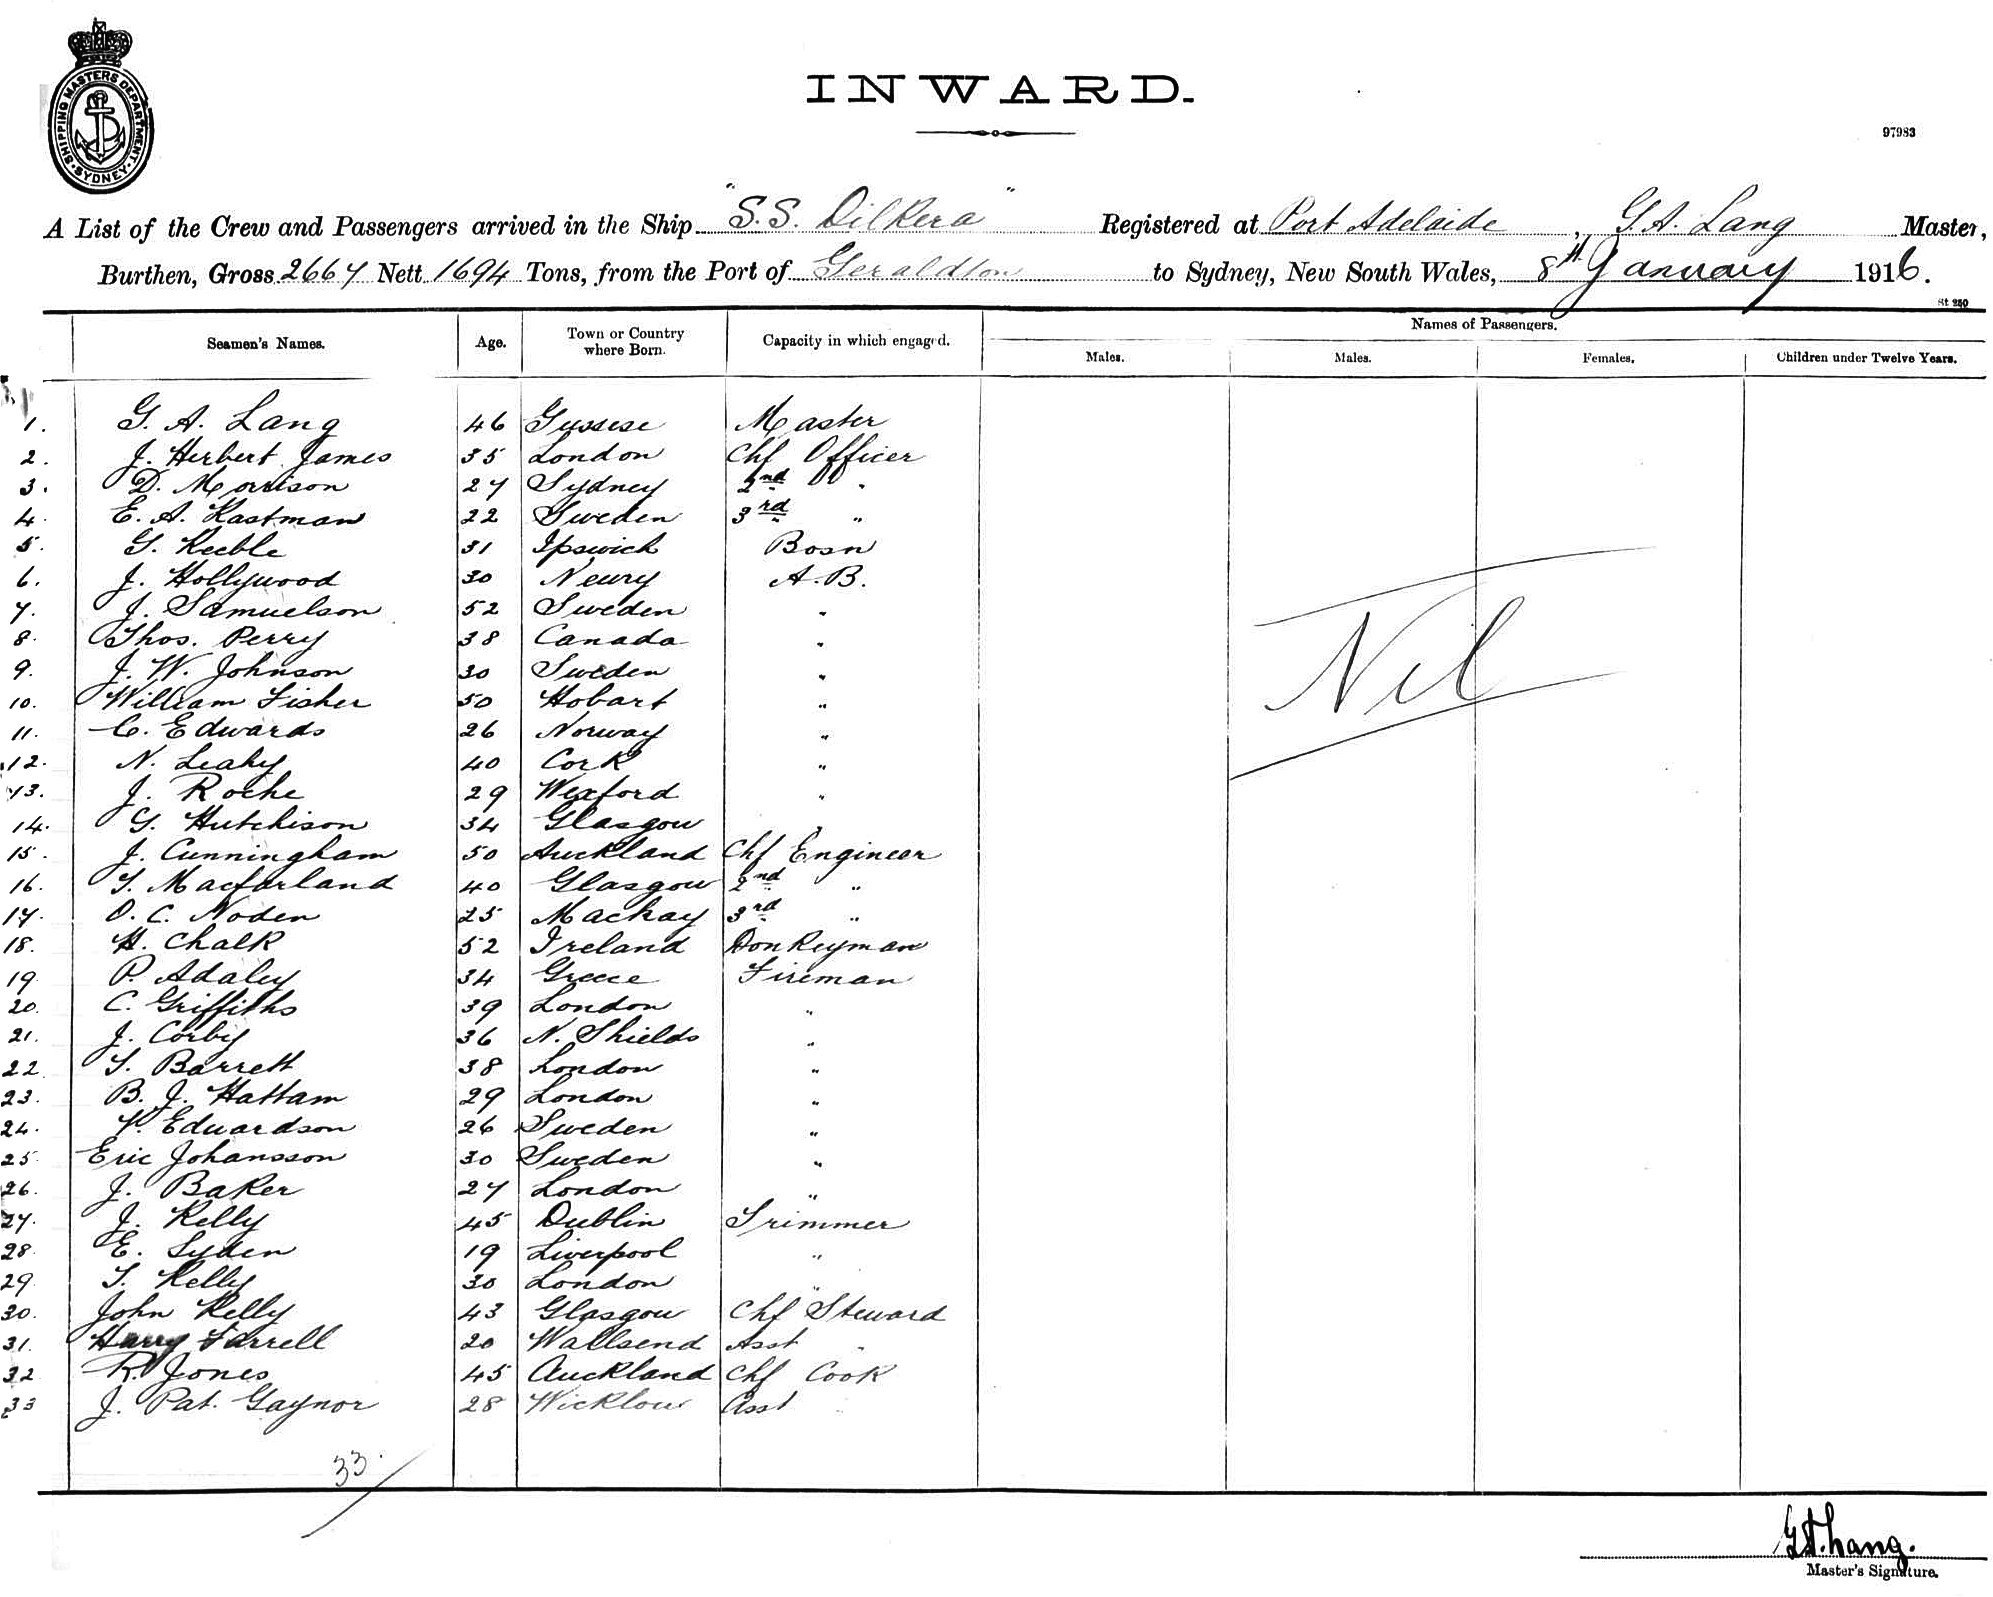 SHIPPING MASTERS DEPARTMENT. SYDNEY
INWARD.
97983
A List of the Crew and Passengers arrived in the Ship "S.S. Dilkera" Registered at Port Adelaide, G. A. Lang Master,
Burthen, Gross 2667 Nett 1694 Tons, from the Port of Geraldton to Sydney, New South Wales, 8th January 1916.
St 250
Seamen's Names. Age. Town or Country where Born. Capacity in which engaged. Names of Passengers.
Males. Males. Females. Children under Twelve Years.
1. G. A. Lang 46 Sussese Master
2. J. Herbert James 35 London Chf Officer
3. D. Morrison 27 Sydney 2nd "
4. E. A. Kastman 22 Sweden 3rd "
5. G. Keeble 31 Ipswich Bosn
6. J. Hollywood 30 Newry A.B.
7. J. Samuelson 52 Sweden "
8. Thos. Perry 38 Canada "
9. J. W. Johnson 30 Sweden "
10. William Fisher 50 Hobart "
11. C. Edwards 26 Norway "
12. N. Leahy 40 Cork "
13. J. Roche 29 Wexford "
14. G. Hutchison 34 Glasgow "
15. J. Cunningham 50 Auckland Chf Engineer
16. T. Macfarland 40 Glasgow 2nd "
17. O. C. Noden 25 Mackay 3rd "
18. H. Chalk 52 Ireland Donkeyman
19. P. Adaley 34 Greece Fireman
20. C. Griffiths 39 London "
21. J. Corby 36 N. Shields "
22. T. Barrett 38 London "
23. B. J. Hattam 29 London "
24. Edwardson 26 Sweden "
25. Eric Johansson 30 Sweden "
26. J. Baker 27 London "
27. J. Kelly 45 Dublin Trimmer
28. E. Lyden 19 Liverpool "
29. T. Kelly 30 London "
30. John Kelly 43 Glasgow Chf Steward
31. Harry Farrell 20 Wallsend Asst "
32 R. Jones 45 Auckland Chf Cook
33 J. Pat. Gaynor 28 Wicklow Asst "
Nil
33
G.A. Lang.
Master's Signature.